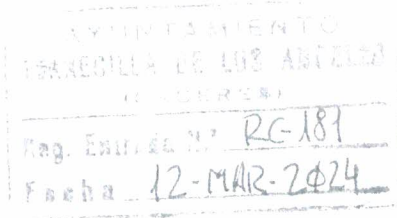 AYUNTAMIENTO
TORRECILLA DE LOS ANGELES
(CACERES)
Reg. Entrada N.º RC-181
Fecha 12-MAR-2024